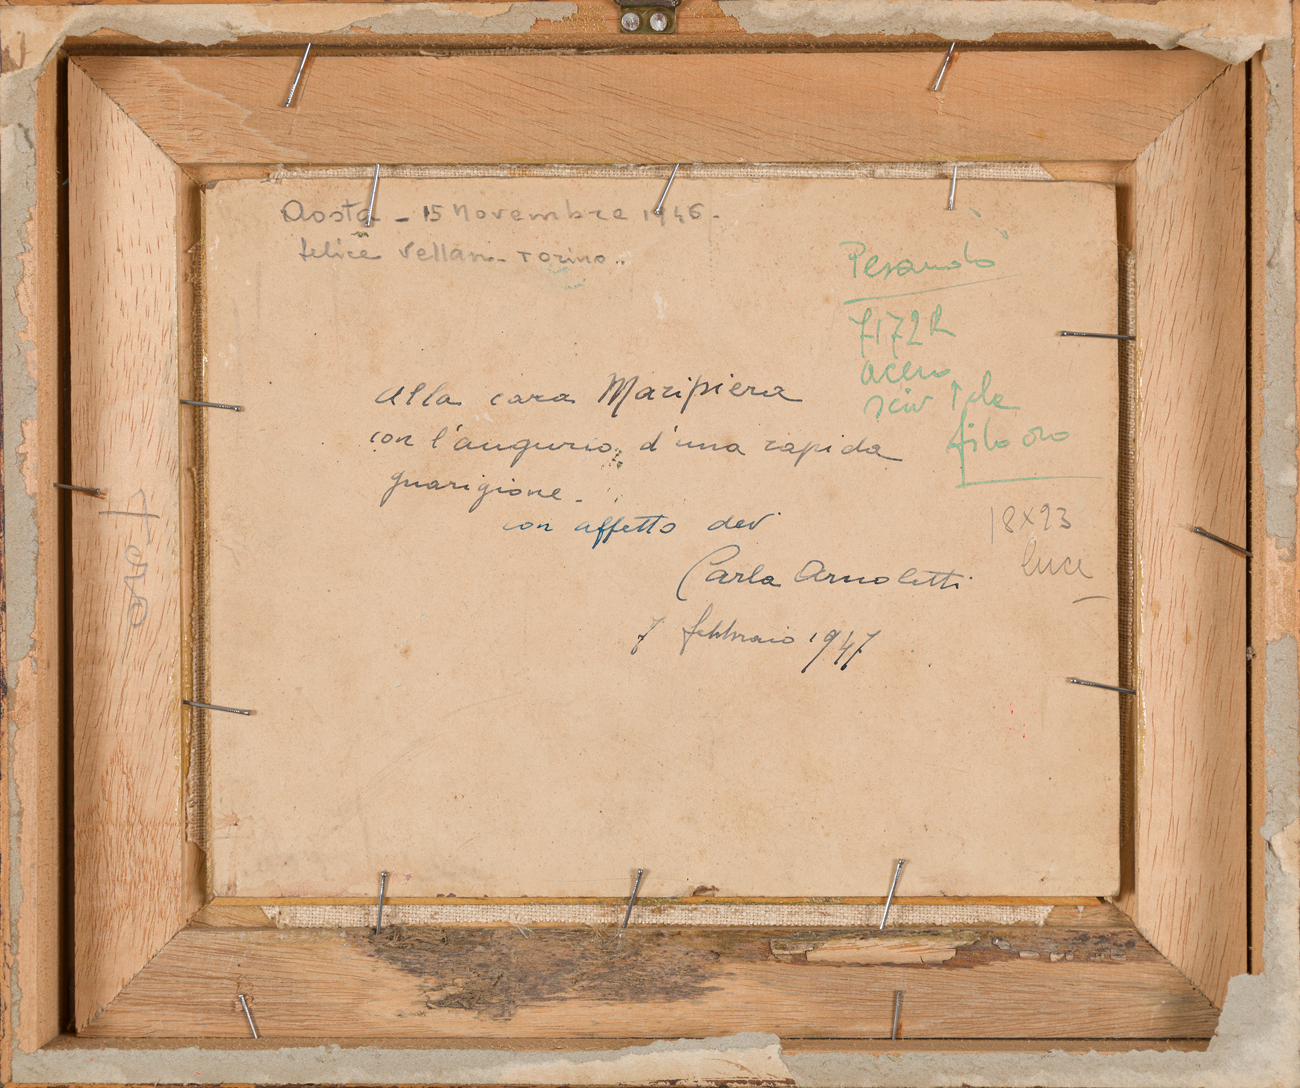 Aosta - 15 Novembre 1946.
felice Vellan - Torino..
Pesando
7172R
acero
filo oro
Alla cara Maripiera
con l'augurio d'una rapida
guarigione.
con affetto
Carla Arnoletti
7 febbraio 1947
18x23
luce